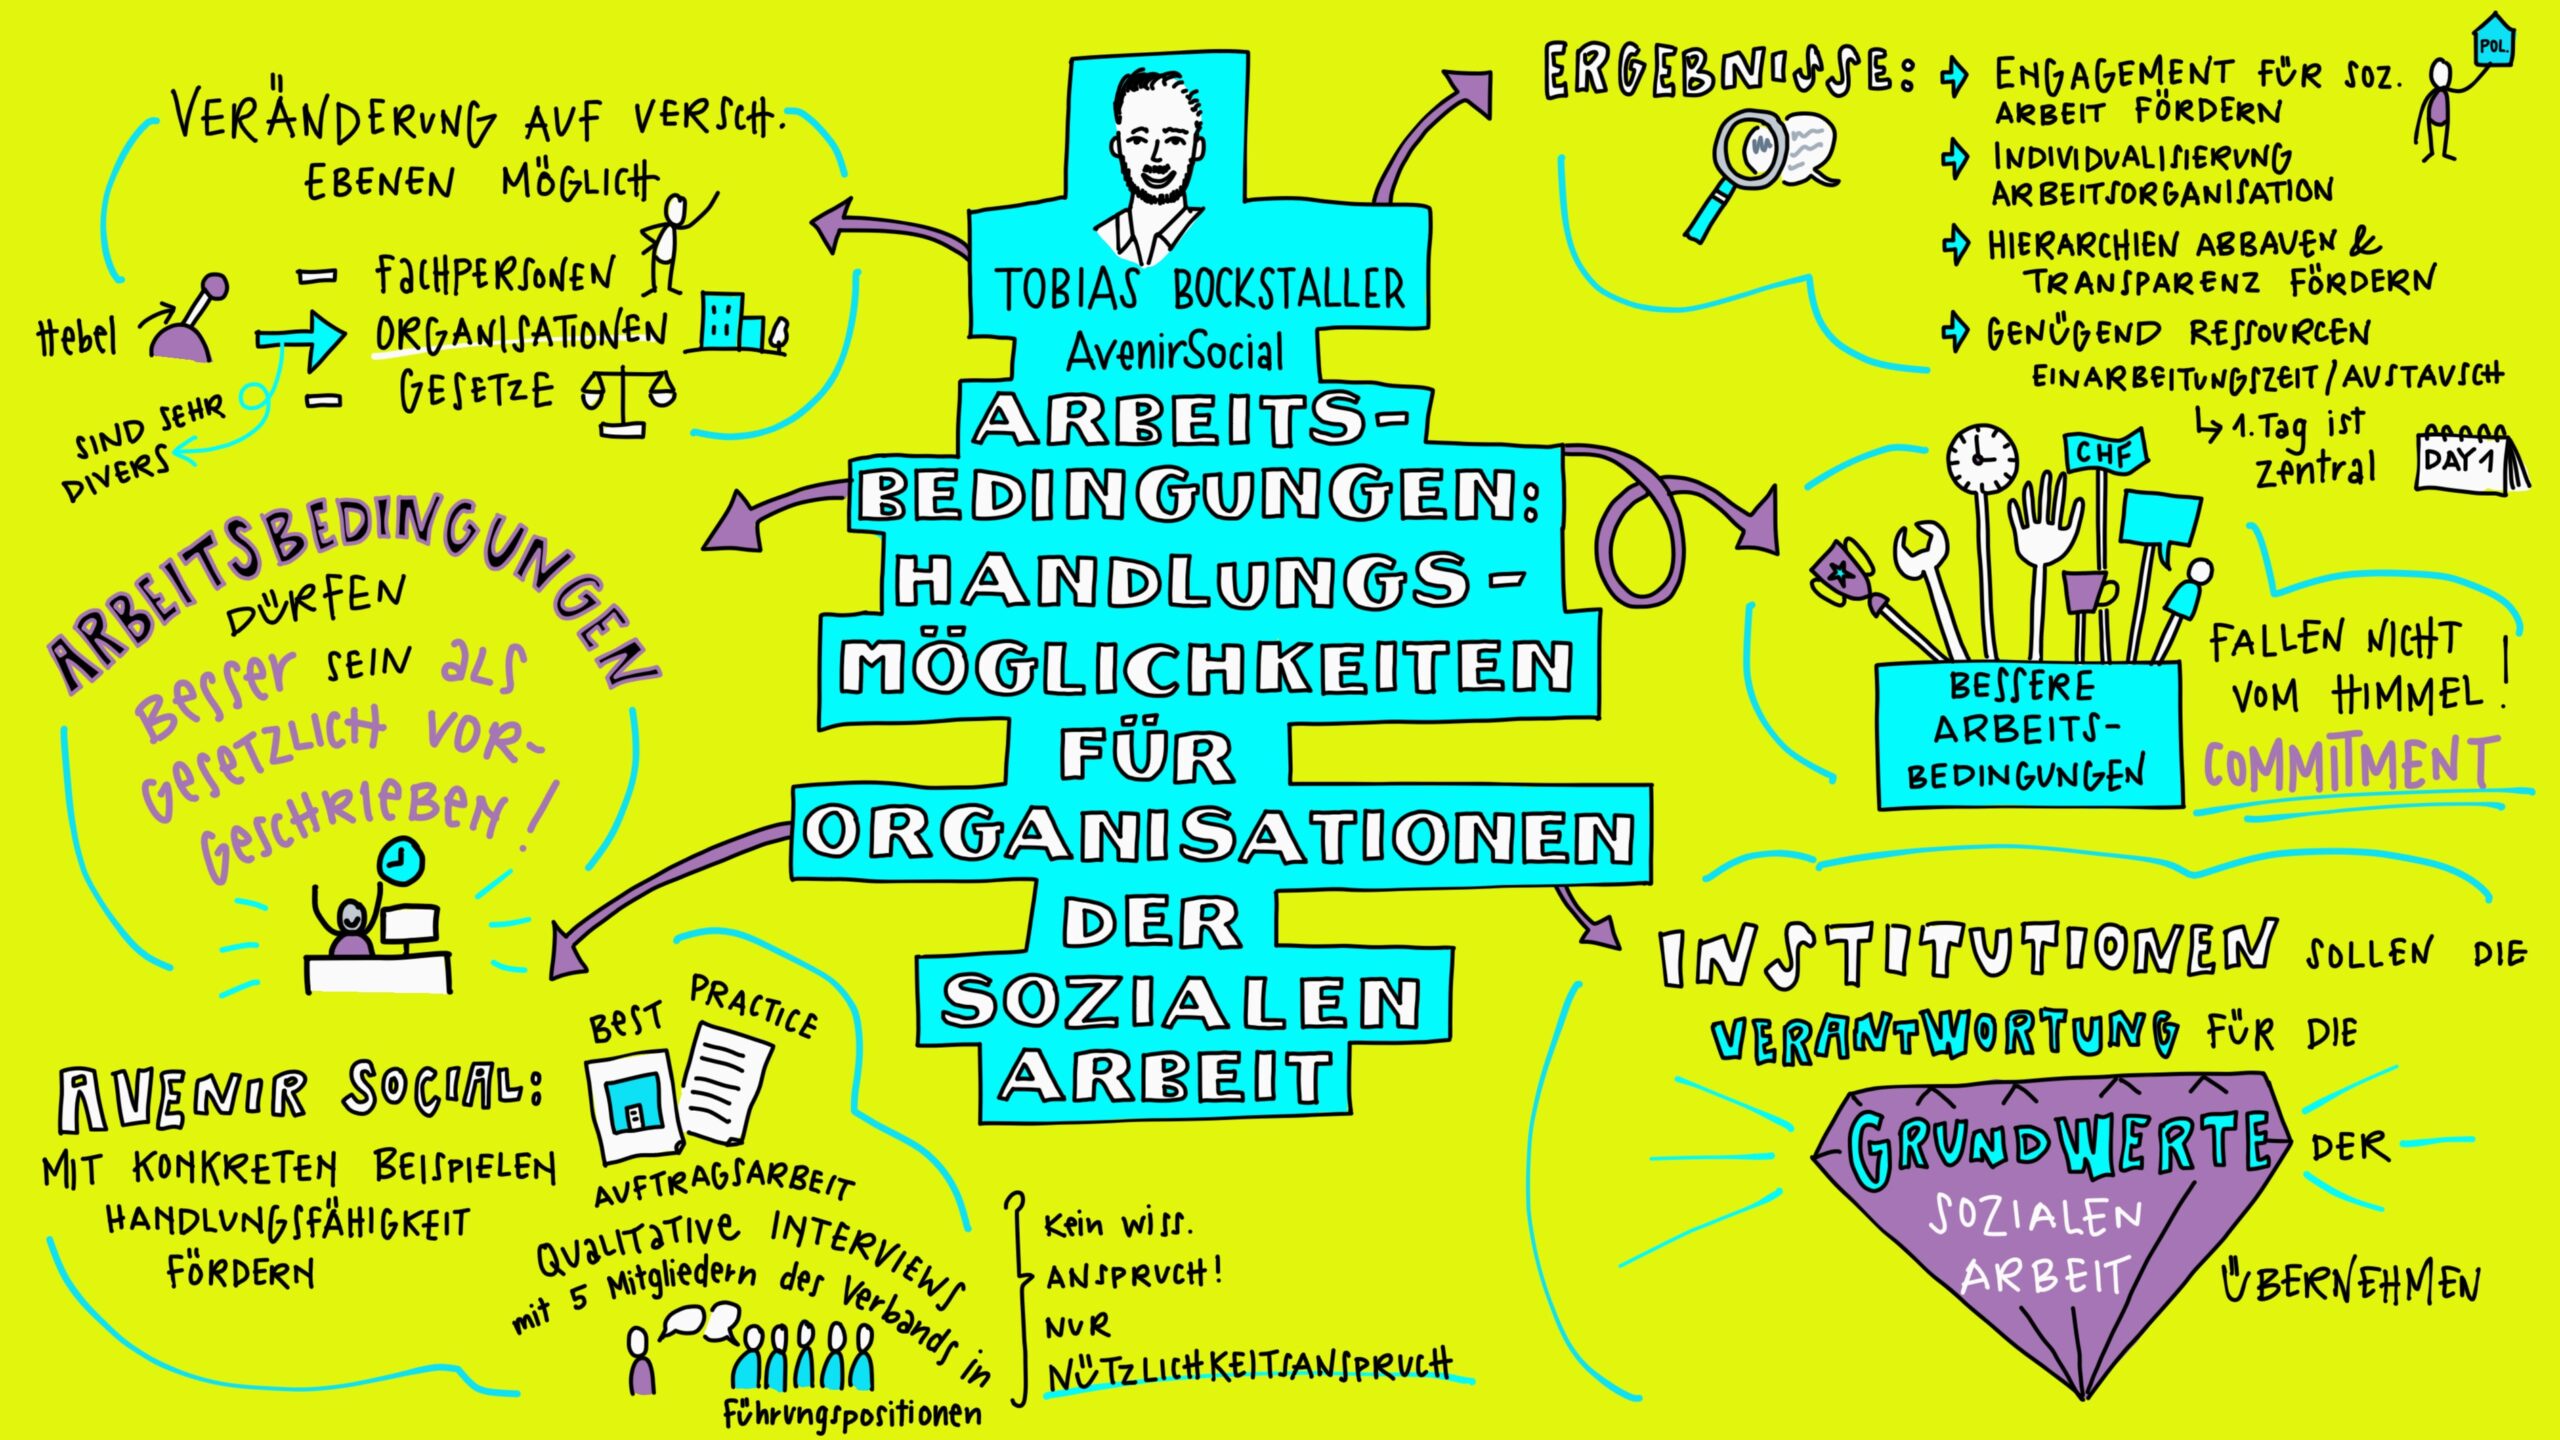 TOBIAS BOCKSTALLER
AvenirSocial
ARBEITS-
BEDINGUNGEN:
HANDLUNGS-
MÖGLICHKEITEN
FÜR
ORGANISATIONEN
DER
SOZIALEN
ARBEIT
VERÄNDERUNG AUF VERSCH.
EBENEN MÖGLICH
Hebel
- FACHPERSONEN
ORGANISATIONEN
- GESETZE
SIND SEHR
DIVERS
ARBEITSBEDINGUNGEN
DÜRFEN
BESSER SEIN ALS
GESETZLICH VOR-
GESCHRIEBEN!
AVENIR SOCIAL:
MIT KONKRETEN BEISPIELEN
HANDLUNGSFÄHIGKEIT
FÖRDERN
BEST PRACTICE
AUFTRAGSARBEIT
QUALITATIVE INTERVIEWS
mit 5 Mitgliedern des Verbands in
Führungspositionen
Kein wiss.
ANSPRUCH!
NUR
NÜTZLICHKEITSANSPRUCH
ERGEBNISSE:
ENGAGEMENT FÜR SOZ.
ARBEIT FÖRDERN
POL.
INDIVIDUALISIERUNG
ARBEITSORGANISATION
HIERARCHIEN ABBAUEN &
TRANSPARENZ FÖRDERN
GENÜGEND RESSOURCEN
EINARBEITUNGSZEIT/AUSTAUSCH
1. Tag ist
zentral
DAY 1
CHF
BESSERE
ARBEITS-
BEDINGUNGEN
FALLEN NICHT
VOM HIMMEL!
COMMITMENT
INSTITUTIONEN SOLLEN DIE
VERANTWORTUNG FÜR DIE
GRUNDWERTE DER
SOZIALEN
ARBEIT
ÜBERNEHMEN